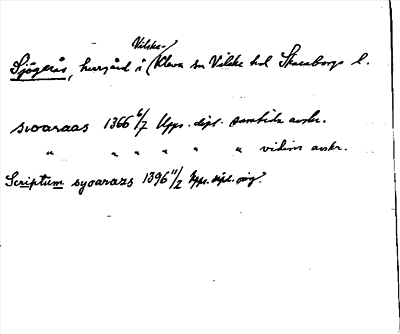 Sjögerås, herrgård i (Vilske-Kleva sn Vilske hd Skaraborgs l.
svoaraas 1366 6/7 Upps. dipl. samtida avskr.
" " " " " " vidim avskr.
Scriptum syoarazs 1396 11/2 Upps. dipl. orig.